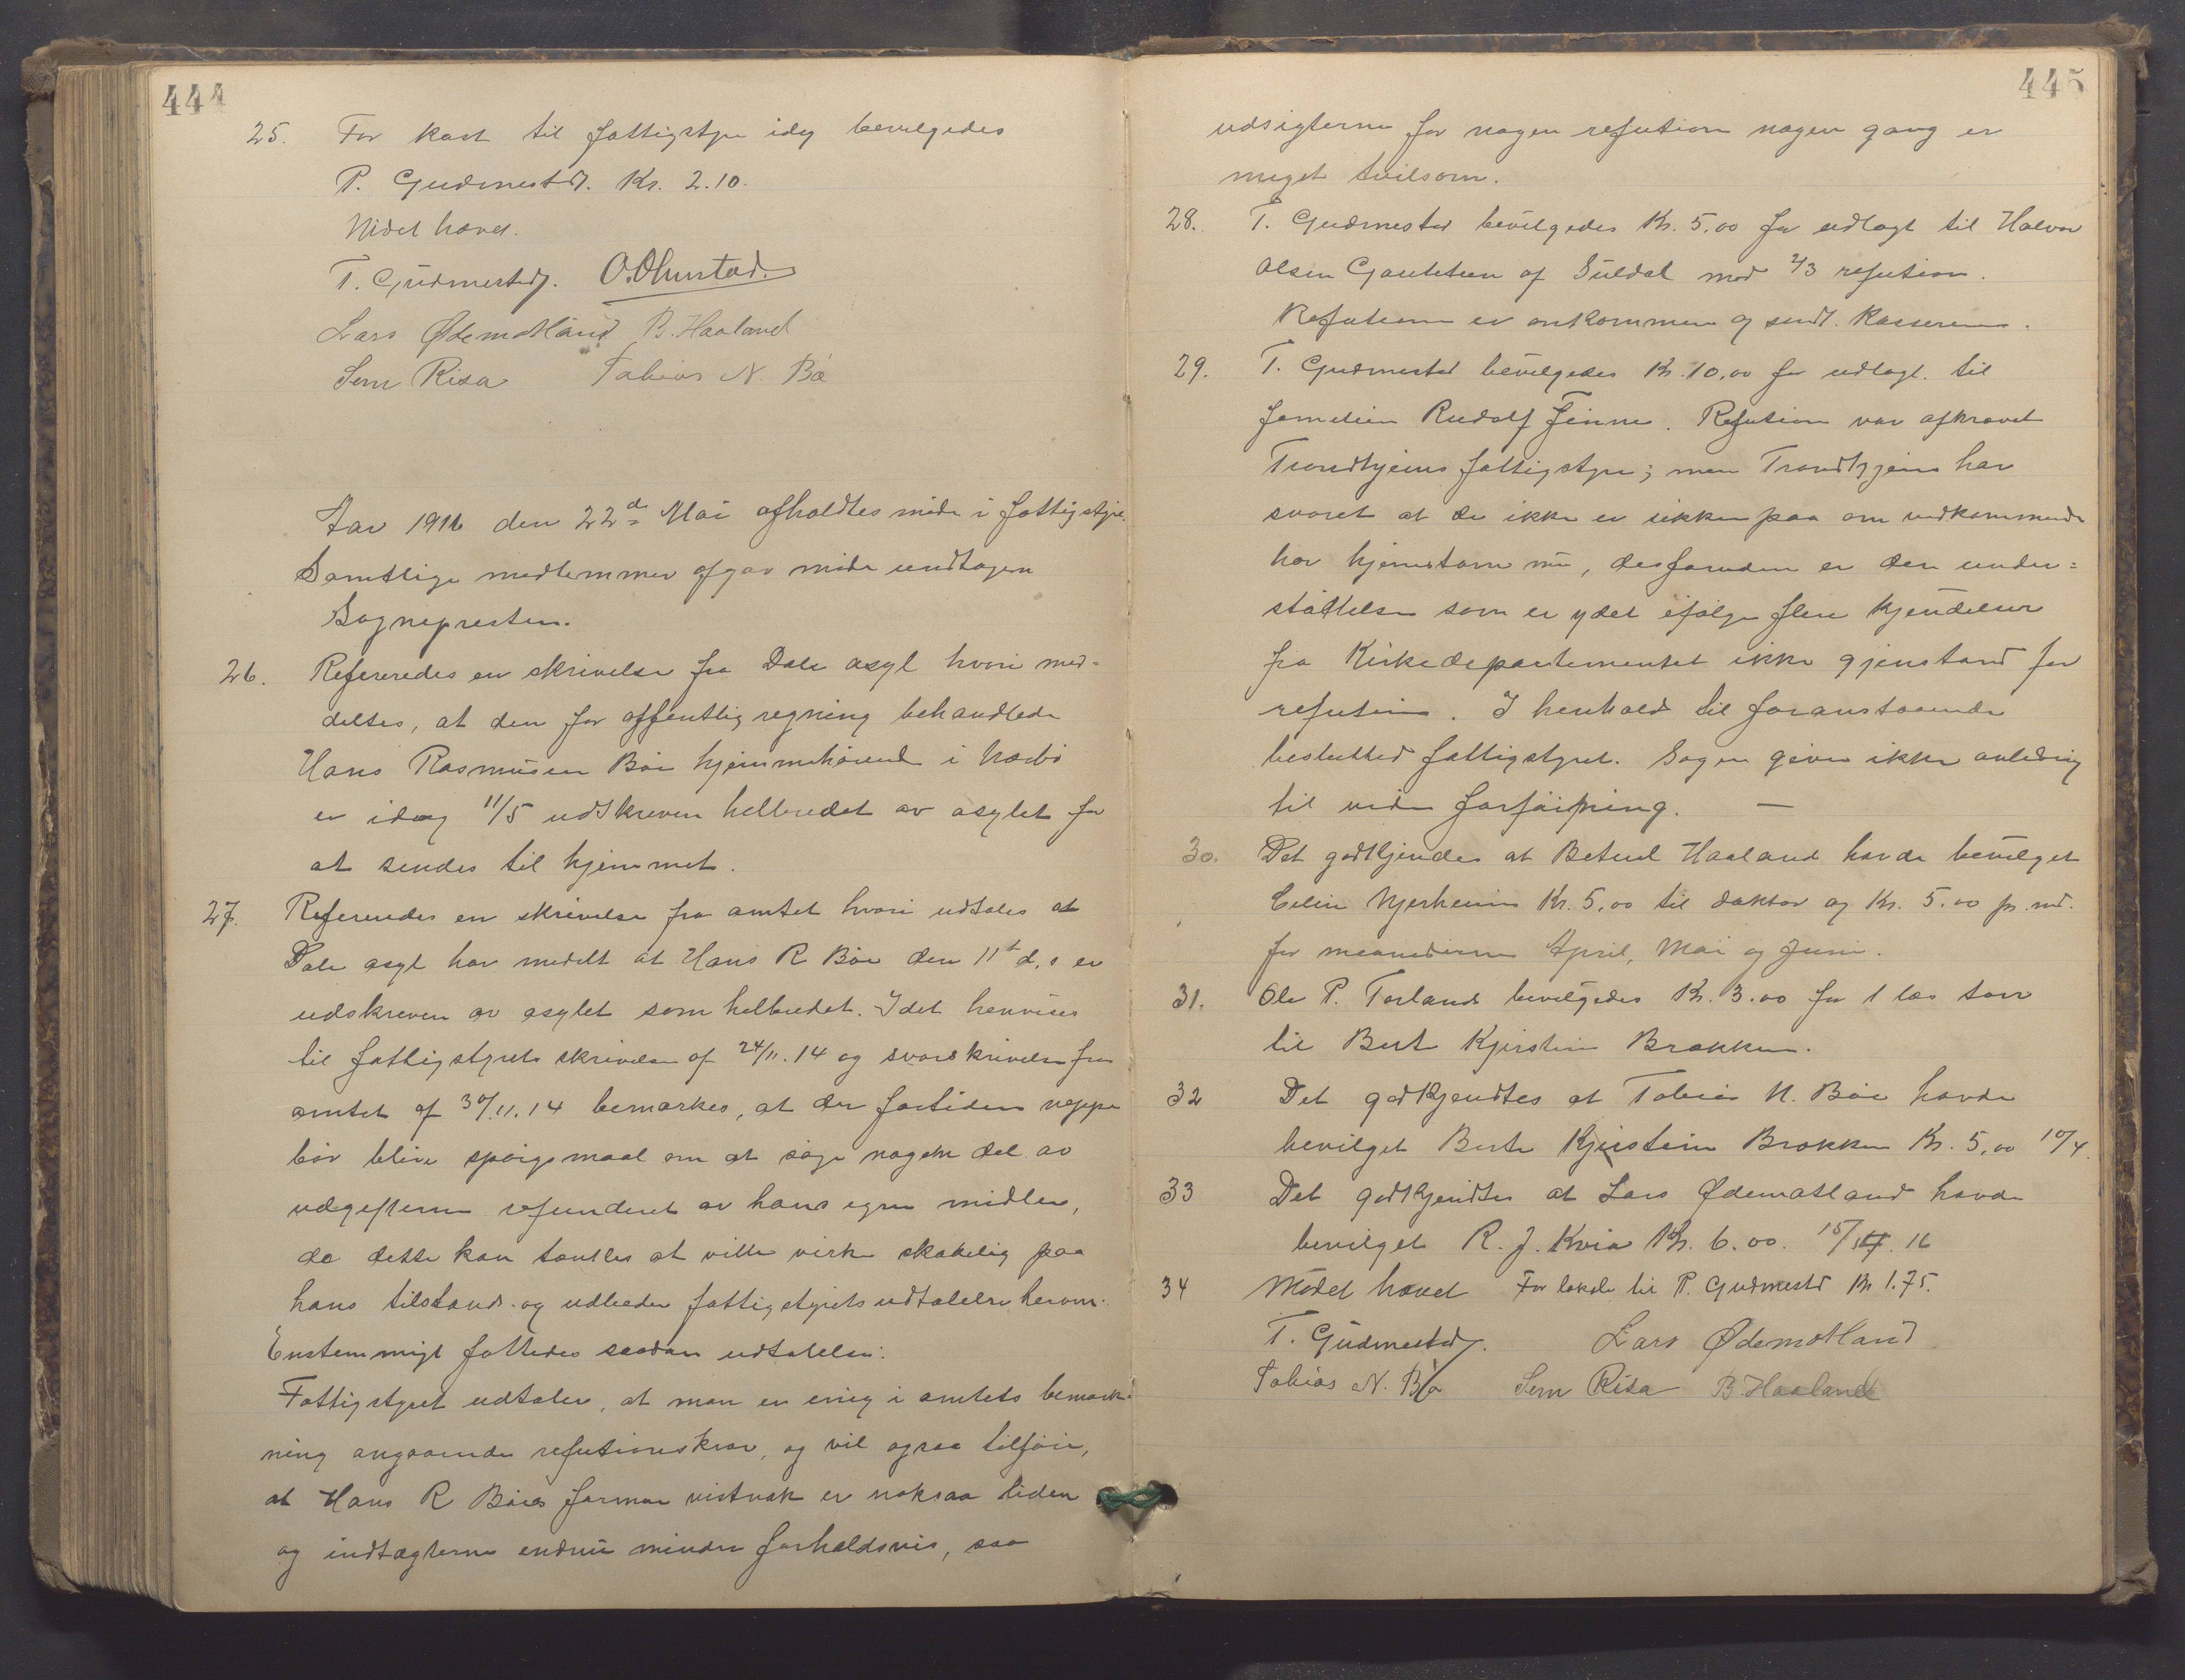 444
25. For kost til fattigstyre idag bevilgedes
P. Gudmestd. Kr. 2.10.
Mödet hævet.
T. Gudmestad. O. Olmstad.
Lars Ødemotland B. Haaland
Sem Risa Tobias N. Bø
Aar 1916 den 22de Mai afholdtes möde i fattigstyre.
Samtlige medlemmer afgav möde undtagen
Sognepresten.
26. Refereredes en skrivelse fra Dale asyl hvori med-
deltes, at den for offentlig regning behandlede
Hans Rasmusen Böe hjemmehörende i Nærbö
er idag 11/5 udskreven helbredet av asylet for
at sendes til hjemmet.
27. Refereredes en skrivelse fra amtet hvori udtales at
Dale asyl har medelt at Hans R Böe den 11te d.s er
udskreven av asylet som helbredet. Idet henvises
til fattigstyrets skrivelse af 24/11.14 og svarskrivelse fra
amtet af 30/11.14 bemærkes, at der for tiden neppe
bör blive spörgsmaal om at söge nogen del av
udgifterne refunderet av hans egne midler,
da dette kan tænkes at ville virke skadelig paa
hans tilstand. og udbeder fattigstyrets udtalelse herom.
Enstemmigt fattedes saadan udtalelse:
Fattigstyret udtaler, at man er enig i amtets bemærk-
ning angaaende refutionskrav, og vil ogsaa tilföie,
at Hans R Böes formue vistnok er noksaa liden
og indtægterne endnu mindre forholdsvis, saa
445
udsigterne for nogen refution nogen gang er
meget tvilsom.
28. T. Gudmestad bevilgedes Kr. 5.00 for udlagt til Halvor
Olsen Gautetun af Suldal mod 2/3 refution.
Refutionen er ankommen og sendt. Kassereren.
29. T. Gudmestad bevilgedes Kr. 10.00 for udlagt. til
familien Rudolf Finne. Refution var afkrævet
Trondhjems fattigstyre; men Trondhjem har
svaret at de ikke er sikker paa om vedkommende
har hjemstavn nu, desforuden er den under=
støttelse som er ydet ifölge flere kjendelser
fra Kirkedepartementet ikke gjenstand for
refution. I henhold til foranstaaende
besluttede fattigstyret. Sagen giver ikke anledning
til videre forföining. —
30. Det godkjendes at Beteul Haaland havde bevilget
Celin Njerheim Kr. 5.00 til doktor og Kr. 5.00 pr. md.
for maanederne April, Mai og Juni.
31. Ole P. Torland bevilgedes Kr. 3.00 for 1 læs torv
til Berte Kjirstine Brækken.
32 Det godkjendtes at Tobias N. Böe havde
bevilget Berte Kjirstein Brækken Kr. 5.00 10/4.
33 Det godkjendtes at Lars Ødemotland havde
bevilget R. J. Kvia Kr. 6.00. 15/4. 16
34 Mödet hævet For lokale til P. Gudmestd Kr 1.75.
T. Gudmestad. Lars Ødemotland
Tobias N. Bø Sem Risa B. Haaland